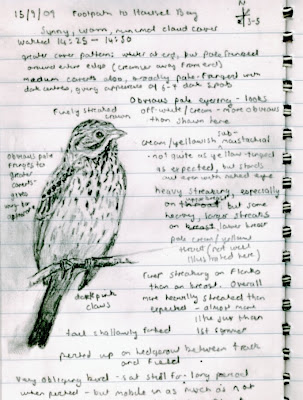 13/9/09 Footpath to Hartsel Bay N
3-5
Sunny, warm, minimal cloud cover
Watched 14:25 – 14:50
greater covert patterns white at tip, but pale fringed
around entire edge (creamier away from end)
medium coverts also, broadly pale-fringed with
dark centres, giving appearance of 6-7 dark spots
Obvious pale eyering - looks
off-white/cream - more obvious
than shown here
Finely streaked
crown
sub-
cream/yellowish moustachial
- not quite as yellow-tinged
as expected, but stands
out even with naked eye
Obvious pale
fringes to
greater
coverts -
heavy streaking, especially
on throat but some
upper breast
heavy, larger streaks
on breast, lower breast
pale cream/yellow
throat (not well
illustrated here)
finer streaking on flanks
than on breast. Overall
more heavily streaked than
expected - almost more
like
1st summer
dark pink
claws
tail shallowly forked
perched up on hedgerow between track
and field.
Very obliging bird - sat still for long period
when perched - but mobile in as much as not